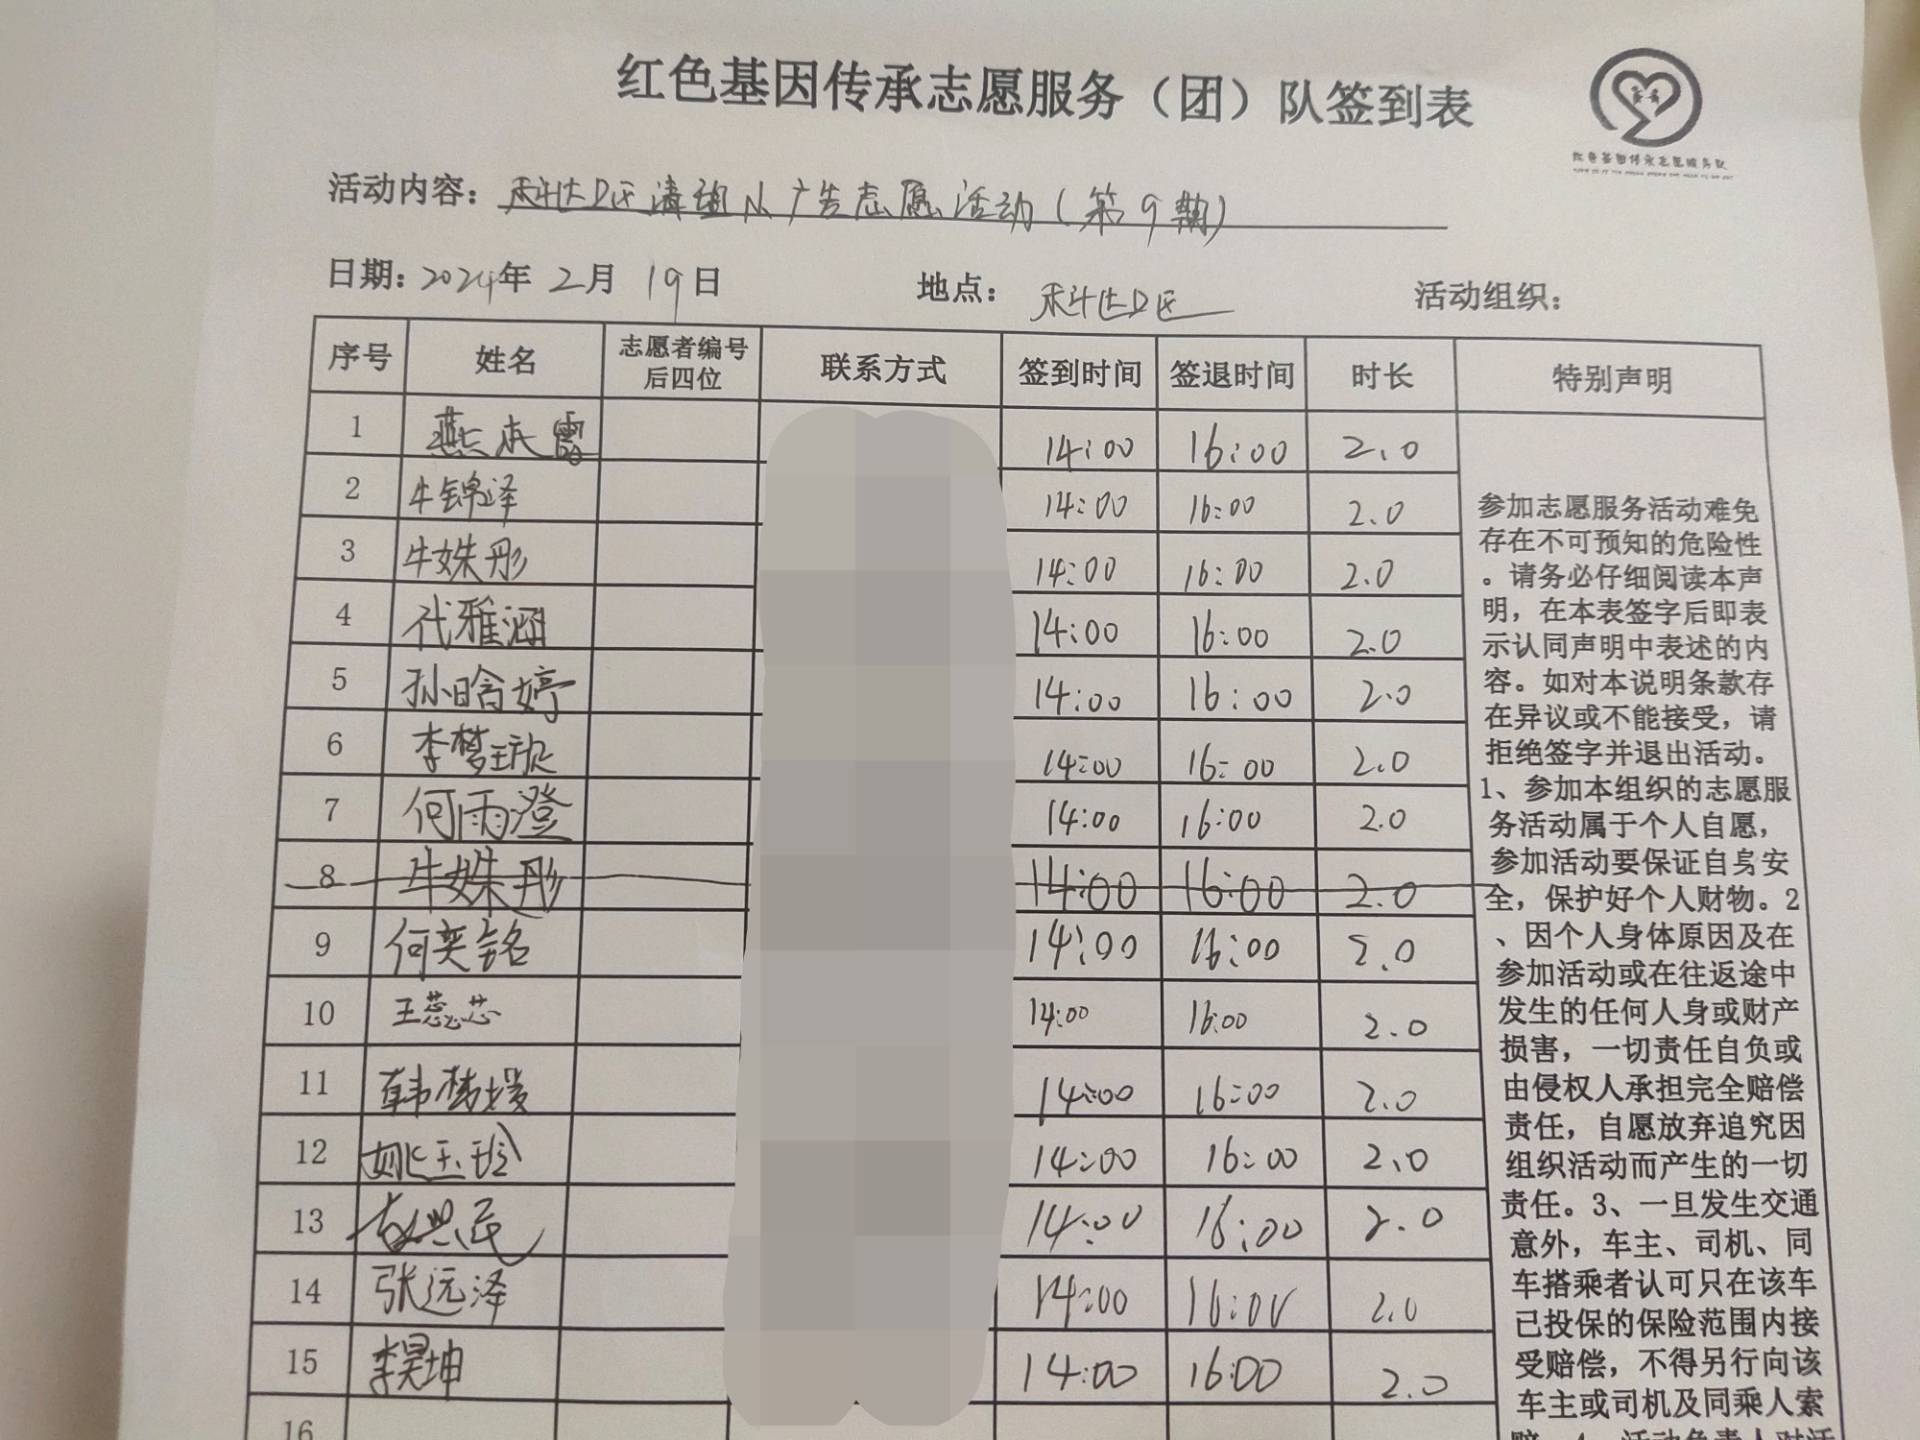 红色基因传承志愿服务（团）队签到表
红色基因传承志愿服务队
活动内容：科社区清理小广告志愿活动（第9期）
日期：2024年2月19日 地点：社区 活动组织：
序号 姓名 志愿者编号后四位 联系方式 签到时间 签退时间 时长 特别声明
1 燕 14:00 16:00 2.0
2 牛锦泽 14:00 16:00 2.0
3 牛姝彤 14:00 16:00 2.0
4 代雅涵 14:00 16:00 2.0
5 孙晗婷 14:00 16:00 2.0
6 李梦珏欣 14:00 16:00 2.0
7 何雨澄 14:00 16:00 2.0
8 牛姝彤 14:00 16:00 2.0
9 何奕铭 14:00 16:00 2.0
10 王蕊芯 14:00 16:00 2.0
11 韩梦媛 14:00 16:00 2.0
12 姚玉玲 14:00 16:00 2.0
13 14:00 16:00 2.0
14 张远泽 14:00 16:00 2.0
15 李昊坤 14:00 16:00 2.0
16
参加志愿服务活动难免
存在不可预知的危险性
。请务必仔细阅读本声
明，在本表签字后即表
示认同声明中表述的内
容。如对本说明条款存
在异议或不能接受，请
拒绝签字并退出活动。
1、参加本组织的志愿服
务活动属于个人自愿，
参加活动要保证自身安
全，保护好个人财物。2
、因个人身体原因及在
参加活动或在往返途中
发生的任何人身或财产
损害，一切责任自负或
由侵权人承担完全赔偿
责任，自愿放弃追究因
组织活动而产生的一切
责任。3、一旦发生交通
意外，车主、司机、同
车搭乘者认可只在该车
已投保的保险范围内接
受赔偿，不得另行向该
车主或司机及同乘人索